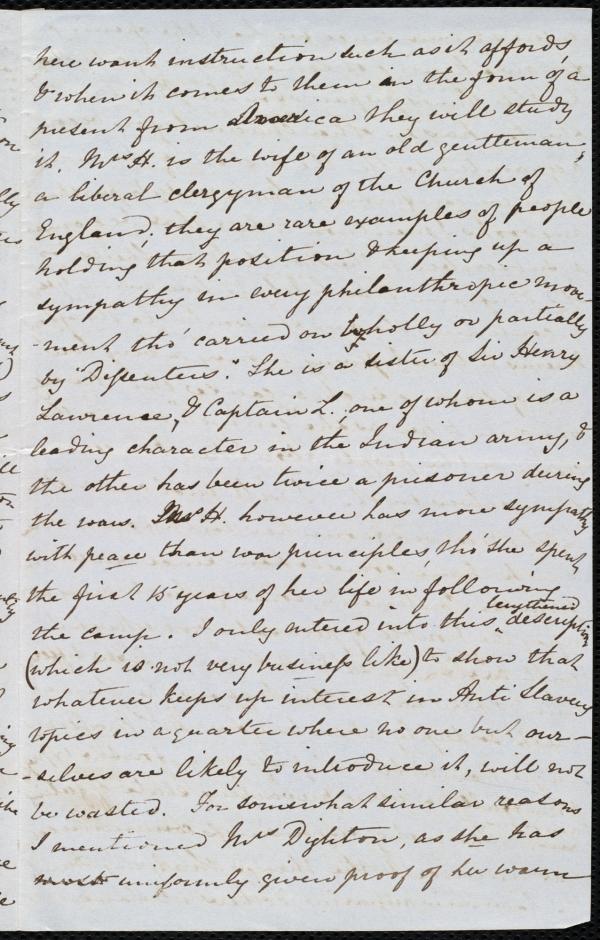 here want instruction such as it affords,
& when it comes to them in the form of a
present from America they will study
it. Mrs H. is the wife of an old gentleman,
a liberal clergyman of the Church of
England; they are rare examples of people
holding that position & keeping up a
sympathy in every philanthropic move-
-ment tho' carried on wholly or partially
by "Dissenters." She is a sister of Sir Henry
Lawrence, & Captain L., one of whom is a
leading character in the Indian army, &
the other has been twice a prisoner during
the wars. Mrs H. however has more sympathy
with peace than war principles, tho' she spent
the first 15 years of her life in following
the camp. I only entered into this lengthened description
(which is not very business like) to show that
whatever keeps up interest in Anti Slavery
topics in a quarter where no one but our-
-selves are likely to introduce it, will not
be wasted. For somewhat similar reasons
I mentioned Mrs Dighton, as she has
most uniformly given proof of her warm